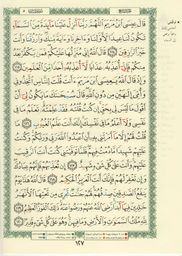 قَالَ عِيسَى ابْنُ مَرْيَمَ اللَّهُمَّ رَبَّنَا أَنزِلْ عَلَيْنَا مَائِدَةً مِّنَ السَّمَاءِ
تَكُونُ لَنَا عِيدًا لِّأَوَّلِنَا وَآخِرِنَا وَآيَةً مِّنكَ وَارْزُقْنَا وَأَنتَ
خَيْرُ الرَّازِقِينَ ١١٤ قَالَ اللَّهُ إِنِّي مُنَزِّلُهَا عَلَيْكُمْ فَمَن يَكْفُرْ بَعْدُ
مِنكُمْ فَإِنِّي أُعَذِّبُهُ عَذَابًا لَّا أُعَذِّبُهُ أَحَدًا مِّنَ الْعَالَمِينَ ١١٥
وَإِذْ قَالَ اللَّهُ يَا عِيسَى ابْنَ مَرْيَمَ أَأَنتَ قُلْتَ لِلنَّاسِ اتَّخِذُونِي
وَأُمِّيَ إِلَٰهَيْنِ مِن دُونِ اللَّهِ قَالَ سُبْحَانَكَ مَا يَكُونُ لِي أَنْ
أَقُولَ مَا لَيْسَ لِي بِحَقٍّ إِن كُنتُ قُلْتُهُ فَقَدْ عَلِمْتَهُ تَعْلَمُ مَا فِي
نَفْسِي وَلَا أَعْلَمُ مَا فِي نَفْسِكَ إِنَّكَ أَنتَ عَلَّامُ الْغُيُوبِ ١١٦
مَا قُلْتُ لَهُمْ إِلَّا مَا أَمَرْتَنِي بِهِ أَنِ اعْبُدُوا اللَّهَ رَبِّي وَرَبَّكُمْ وَكُنتُ
عَلَيْهِمْ شَهِيدًا مَّا دُمْتُ فِيهِمْ فَلَمَّا تَوَفَّيْتَنِي كُنتَ أَنتَ الرَّقِيبَ
عَلَيْهِمْ وَأَنتَ عَلَىٰ كُلِّ شَيْءٍ شَهِيدٌ ١١٧ إِن تُعَذِّبْهُمْ فَإِنَّهُمْ عِبَادُكَ
وَإِن تَغْفِرْ لَهُمْ فَإِنَّكَ أَنتَ الْعَزِيزُ الْحَكِيمُ ١١٨ قَالَ اللَّهُ هَٰذَا يَوْمُ
يَنفَعُ الصَّادِقِينَ صِدْقُهُمْ لَهُمْ جَنَّاتٌ تَجْرِي مِن تَحْتِهَا الْأَنْهَارُ
خَالِدِينَ فِيهَا أَبَدًا رَّضِيَ اللَّهُ عَنْهُمْ وَرَضُوا عَنْهُ ذَٰلِكَ الْفَوْزُ الْعَظِيمُ ١١٩
لِلَّهِ مُلْكُ السَّمَاوَاتِ وَالْأَرْضِ وَمَا فِيهِنَّ وَهُوَ عَلَىٰ كُلِّ شَيْءٍ قَدِيرٌ ١٢٠
١٢٧